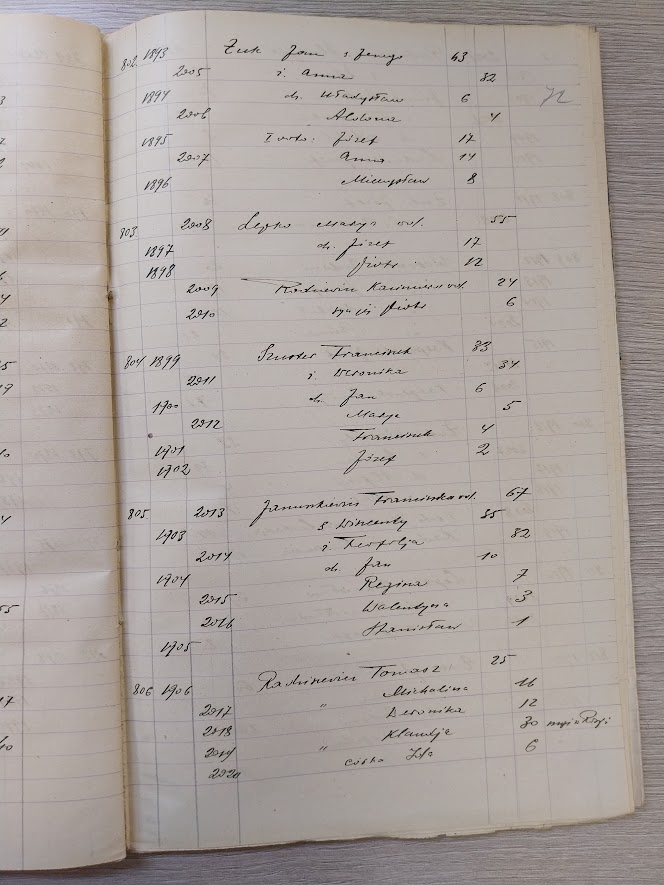 802 1893 Żuk Jan s Jerzego 43
2005 ż. Anna 32
1894 dz. Władysław 6
72
2006 Aldona 4
1895 Józef 17
2007 Anna 14
1896 Mieczysław 8
803 2008 Maryja wd. 55
1897 dz. Józef 17
1898 Piotr 12
2009 Kazimiera wd. 24
2010 Piotr 6
804 1899 Szuster Franciszek 33
2011 ż. Weronika 34
dz. Jan 6
1900 Maryja 5
2012 Franciszek 4
1901 Józef 2
1902
805 2013 Januszkiewicz Franciszka wd. 67
s Wincenty 35
1903 ż. Teofilja 32
2014 dz. Jan 10
1904 Regina 7
2015 Walentyna 3
2016 Stanisław 1
1905
806 1906 Radziewicz Tomasz 25
Michalina 16
2017 " Weronika 12
2018 Klaudja 30
2019 " córka 6
2020